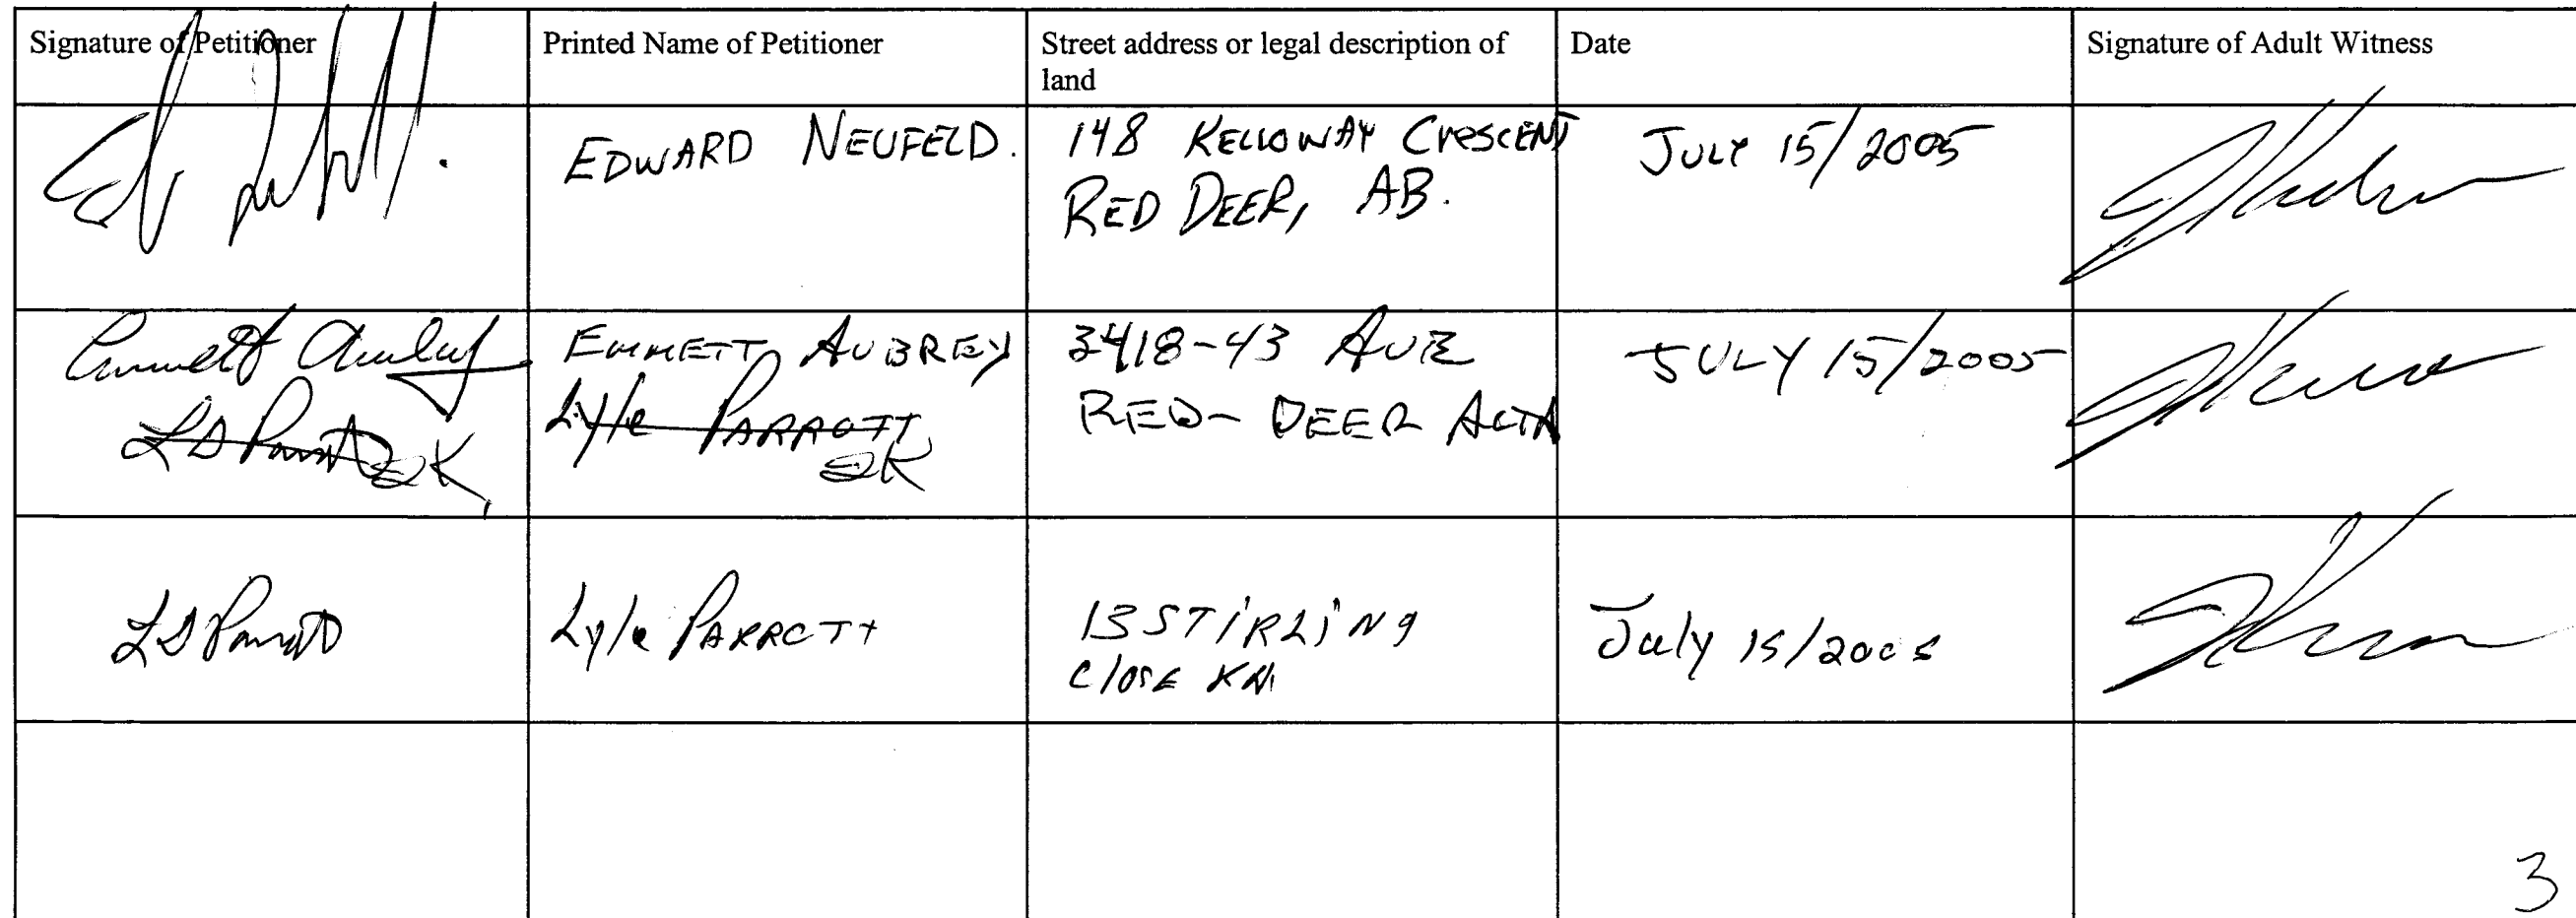 Signature of Petitioner
Printed Name of Petitioner
Street address or legal description of
land
Date
Signature of Adult Witness
EDWARD NEUFELD.
148 KELLOWAY CRESCENT
RED DEER, AB.
JULY 15/2005
Emmett Aubrey
EMMETT AUBREY
3418-43 AVE
RED-DEER ALTA
JULY 15/2005
LD Parrott
Lyle PARROTT
LD Parrott
Lyle PARROTT
13 STIRLING
CLOSE
July 15/2005
3